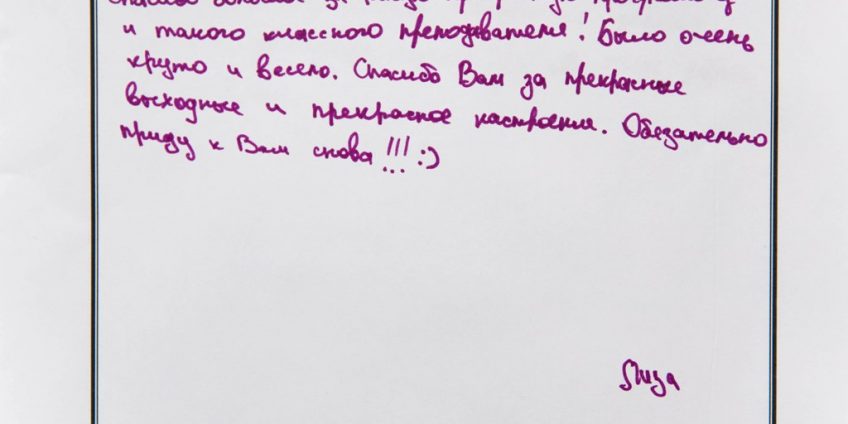 Спасибо большое за
и такого классного преподавателя! Было очень
круто и весело. Спасибо Вам за прекрасные
выходные и прекрасное настроения. Обезательно
приду к Вам снова !!! :)
Лиза